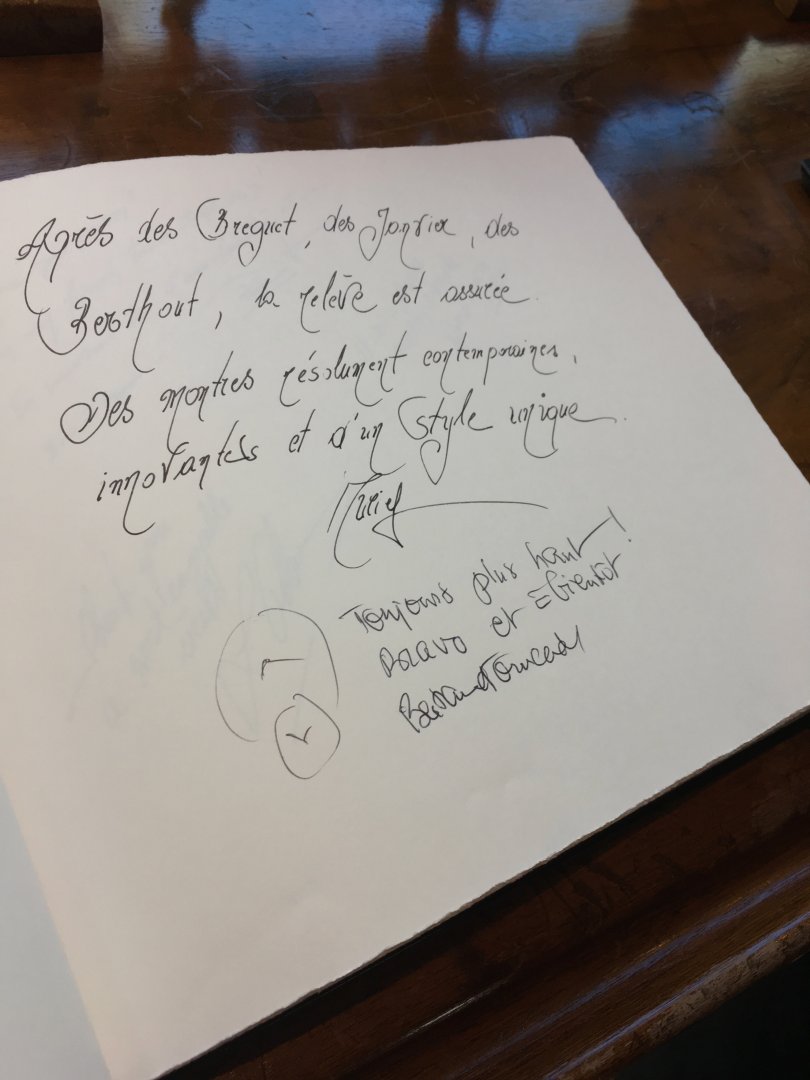 Après des Breguet, des Janvier, des
Berthout, la relève est assurée.
Des montres résolument contemporaines,
innovantes et d'un style unique.
Toujours plus haut !
Bravo et à bientôt